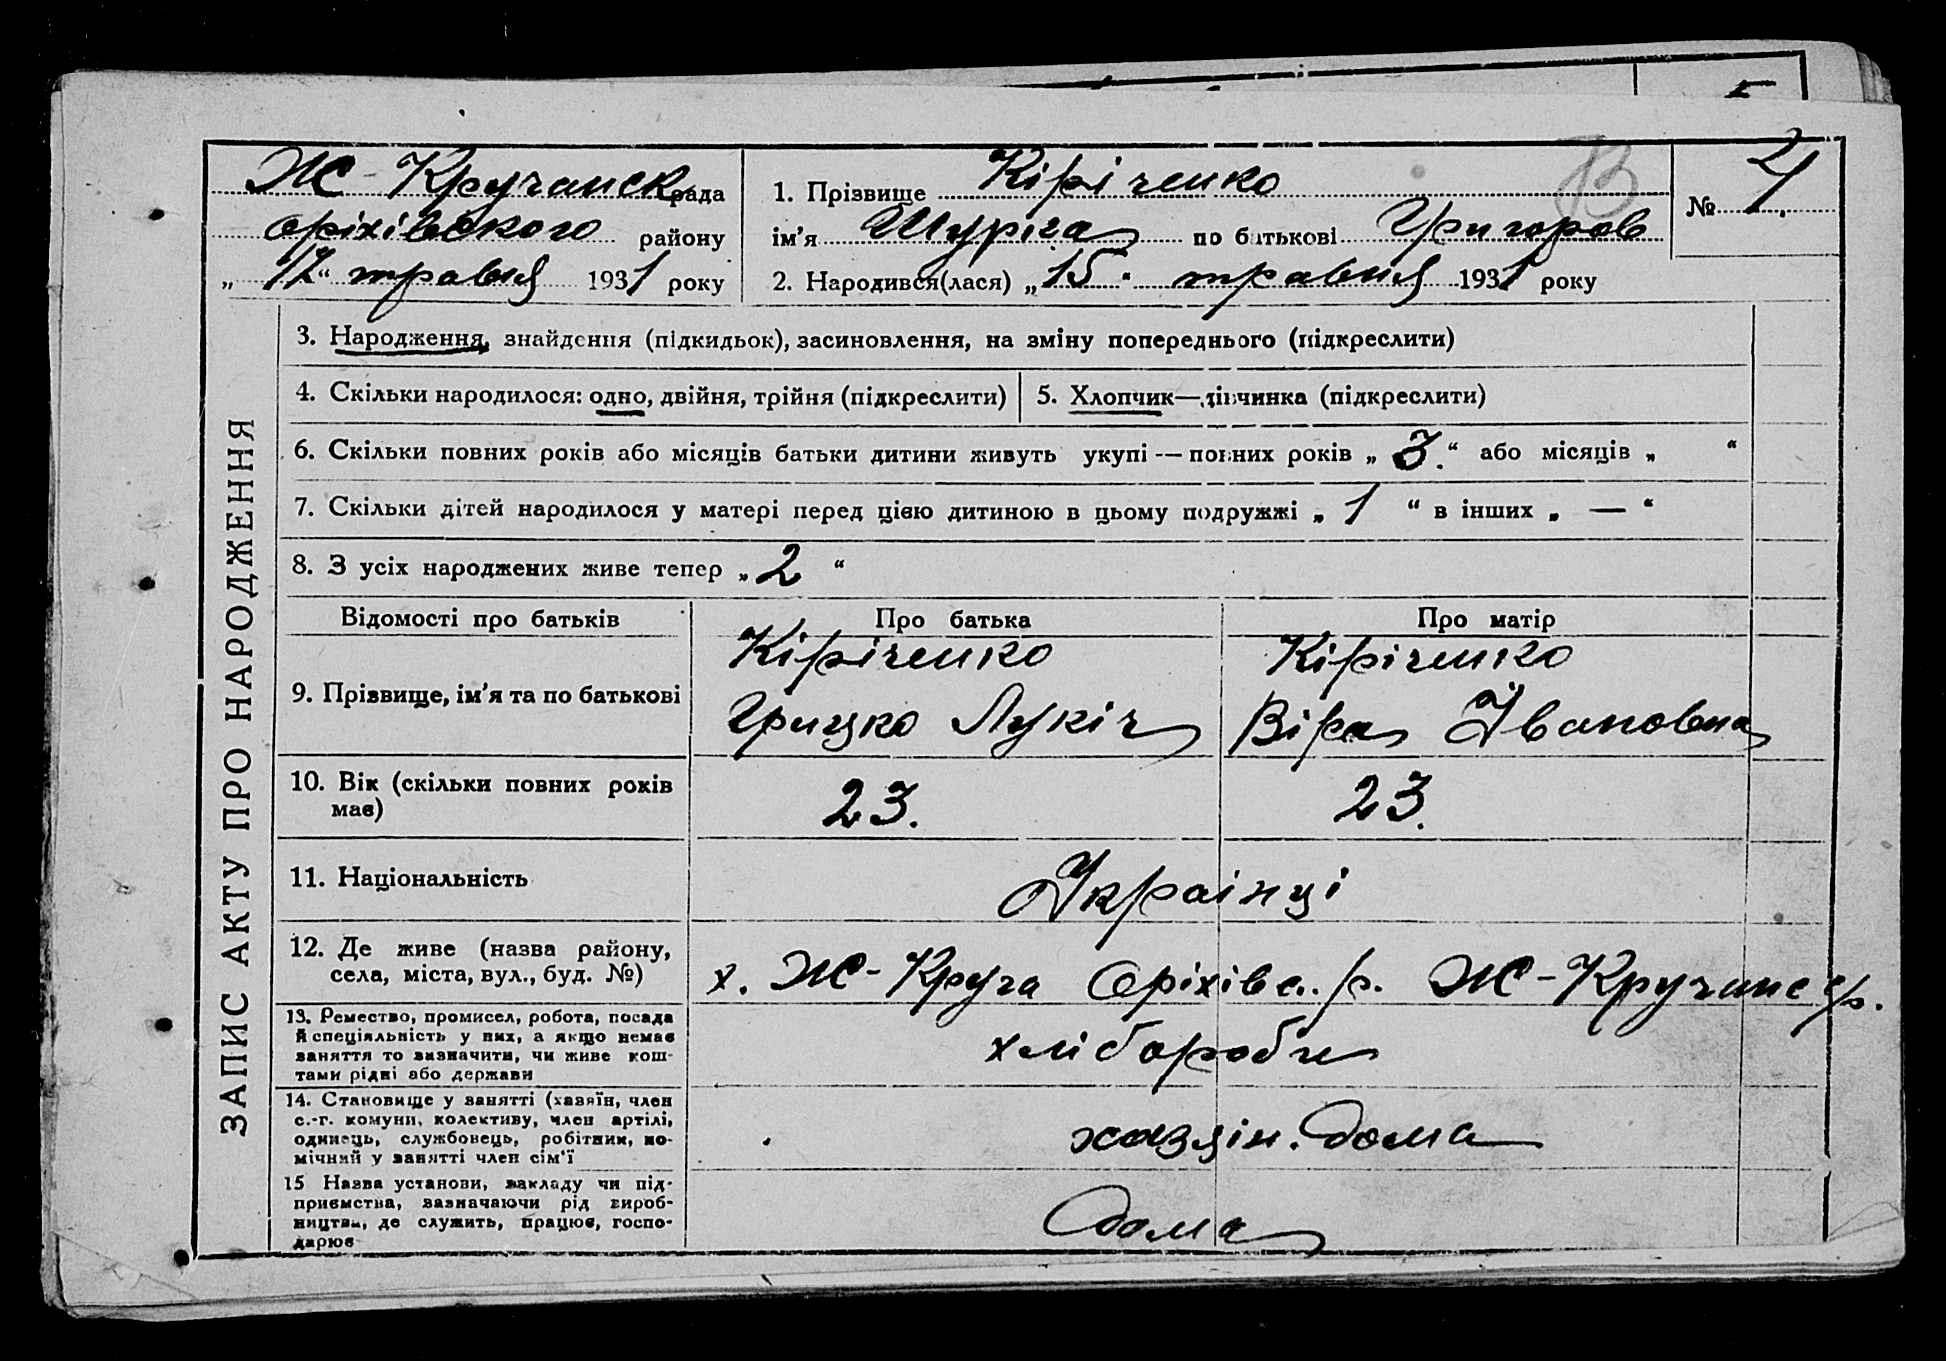 5
Ж-Кручанск рада
оріхівського району
„17“ травня 1931 року
1. Прізвище Кіріченко
В
№ 4.
ім'я Шуріка по батькові Григоров
2. Народився(лася) „15" травня 1931 року
ЗАПИС АКТУ ПРО НАРОДЖЕННЯ
3. Народження, знайдення (підкидьок), засиновлення, на зміну попереднього (підкреслити)
4. Скільки народилося: одно, двійня, трійня (підкреслити)
5. Хлопчик—дівчинка (підкреслити)
6. Скільки повних років або місяців батьки дитини живуть укупі — повних років „3.“ або місяців „ “
7. Скільки дітей народилося у матері перед цією дитиною в цьому подружжі „1“ в інших „—“
8. З усіх народжених живе тепер „2“
Відомості про батьків
Про батька
Про матір
9. Прізвище, ім'я та по батькові
Кіріченко
Грицко Лукіч
Кіріченко
Віра Івановна
10. Вік (скільки повних років
має)
23.
23.
11. Національність
Українці
12. Де живе (назва району,
села, міста, вул., буд. №)
х. Ж-Круча Оріхівс. р. Ж-Кручанс с/р.
13. Ремество, промисел, робота, посада
й спеціяльність у них, а якщо немає
заняття то визначити, чи живе кош-
тами рідні або держави
хлібороби
14. Становище у занятті (хазяїн, член
с.-г. комуни, колективу, член артілі,
одинець, службовець, робітник, по-
мічний у занятті член сім'ї
хазяін. дома
15 Назва установи, закладу чи під-
приємства, зазначаючи рід вироб-
ництва, де служить, працює, госпо-
дарює
дома